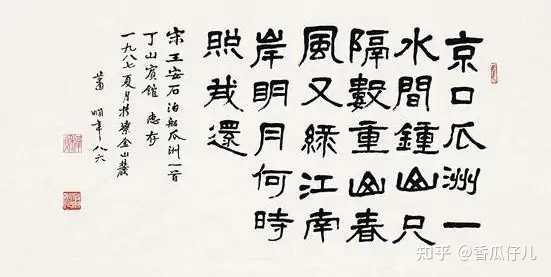 京口瓜洲一
水間鍾山只
隔數重山春
風又綠江南
岸明月何時
照我還
宋王安石泊船瓜洲一首
丁山賓館 惠存
一九八七夏月於紫金山麓
蕭嫻年八六
知乎 @香瓜仔儿